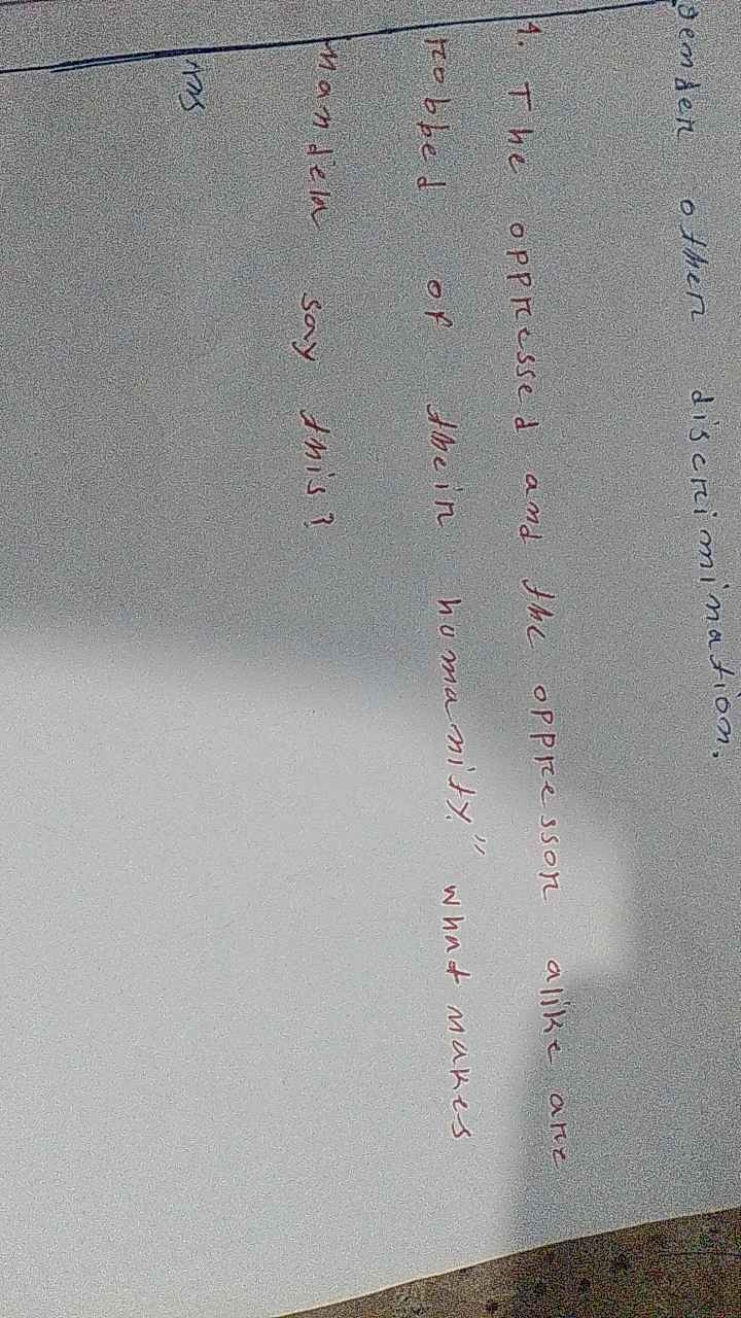 gender other discrimination.
1. The oppressed and the oppressor alike are
robbed of their humanity." what makes
mandela say this?
Ans